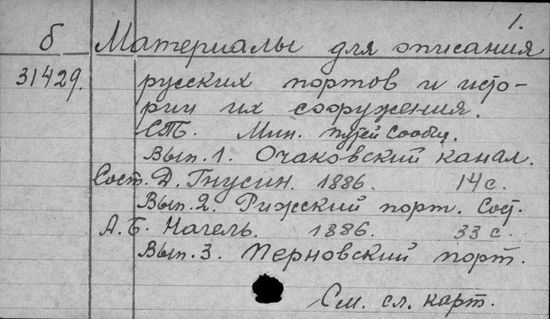 1.
б Материалы для описания
31429. русских портов и исто-
рии их сооружения.
СПб. Мин. путей сообщ.
Вып. 1. Очаковский канал.
Сост. Д. Гнусин. 1886. 14 с.
Вып. 2. Рижский порт. Сост.
А. Б. Нагель. 1886. 33 с.
Вып. 3. Перновский порт.
См. сл. карт.